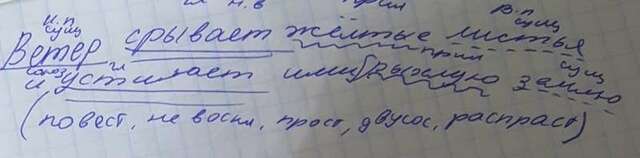 и.п сущ прил в.п сущ
Ветер срывает жёлтые листья
союз гл прил сущ
и устилает ими взрослую землю
(повест, не воскл, прост, двусос, распраст)